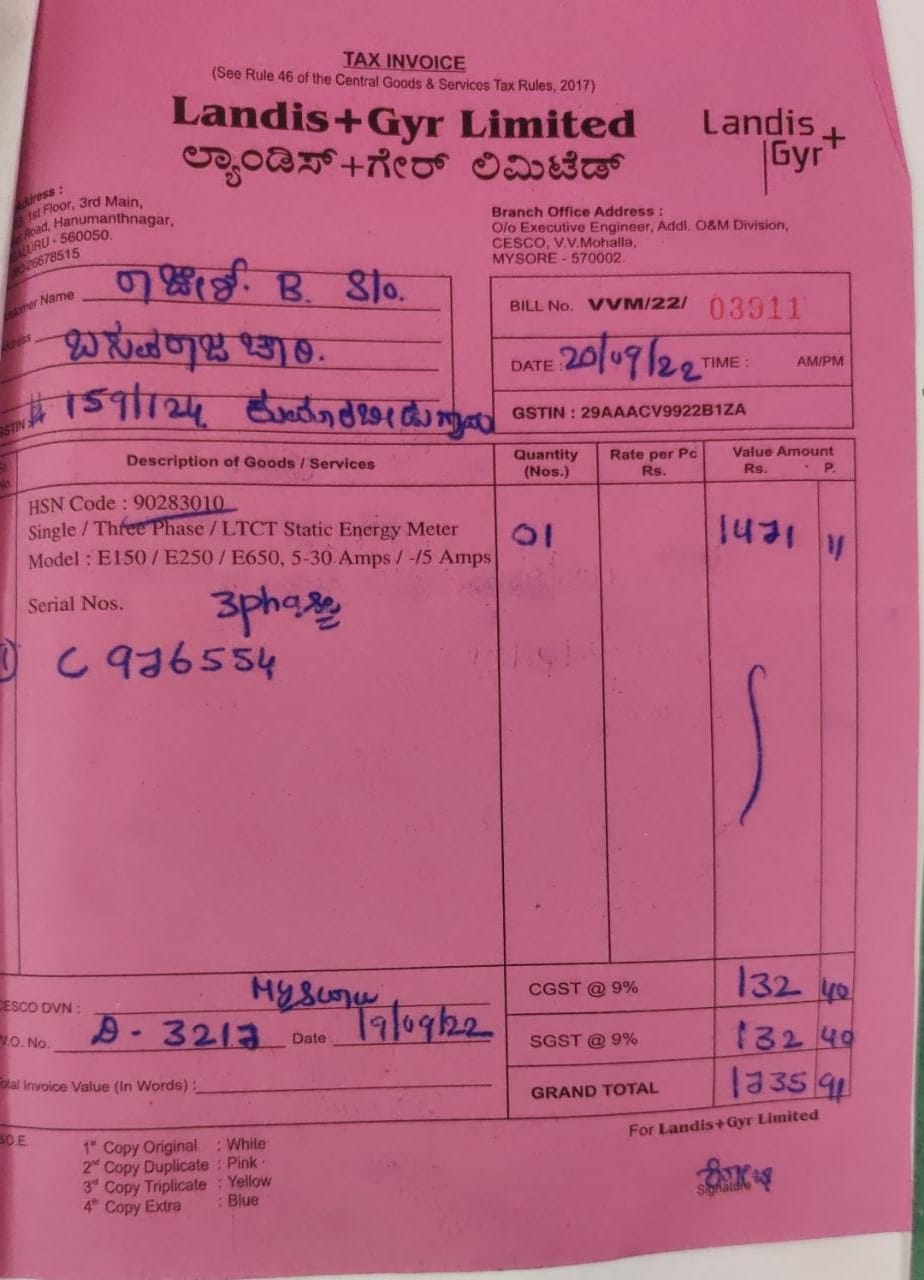 TAX INVOICE
(See Rule 46 of the Central Goods & Services Tax Rules, 2017)
Landis+Gyr Limited
ಲ್ಯಾಂಡಿಸ್+ಗೇರ್ ಲಿಮಿಟೆಡ್
Landis+
Gyr
Address :
1st Floor, 3rd Main,
Road, Hanumanthnagar,
560050.
26678515
Branch Office Address :
O/o Executive Engineer, Addl. O&M Division,
CESCO, V.V.Mohalla,
MYSORE - 570002.
Name ರಾಜೇಶ್. B. S/o.
ಬಸವರಾಜ ಚಾರಿ.
GSTIN # 159/124
BILL No. VVM/22/ 03911
DATE : 20/09/22 TIME : AM/PM
GSTIN : 29AAACV9922B1ZA
No. Description of Goods / Services Quantity (Nos.) Rate per Pc Rs. Value Amount Rs. P.
HSN Code : 90283010
Single / Three Phase / LTCT Static Energy Meter 01 1471 11
Model : E150 / E250 / E650, 5-30 Amps / -/5 Amps
Serial Nos. 3
1 C 976554
CESCO DVN :
W.O. No. D - 3217 Date 19/09/22
Total Invoice Value (In Words) :
CGST @ 9% 132 40
SGST @ 9% 132 40
GRAND TOTAL 1735 91
For Landis+Gyr Limited
1st Copy Original : White
2nd Copy Duplicate : Pink
3rd Copy Triplicate : Yellow
4th Copy Extra : Blue
Signature